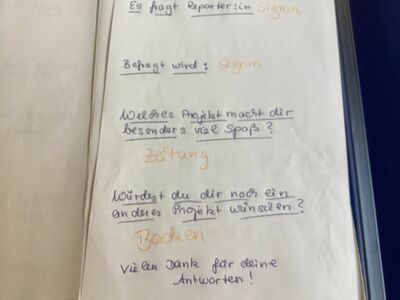 Es fragt Reporter:in Sigun
Befragt wird: Sigun
Welches Projekt macht dir
besonders viel Spaß?
Zeitung
Würdest du dir noch ein
anderes Projekt wünschen?
Backen
Vielen Dank für deine
Antworten!